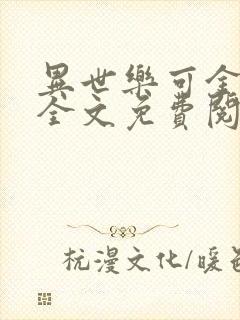 異世樂可全
全文免費閱
杭漫文化/暖